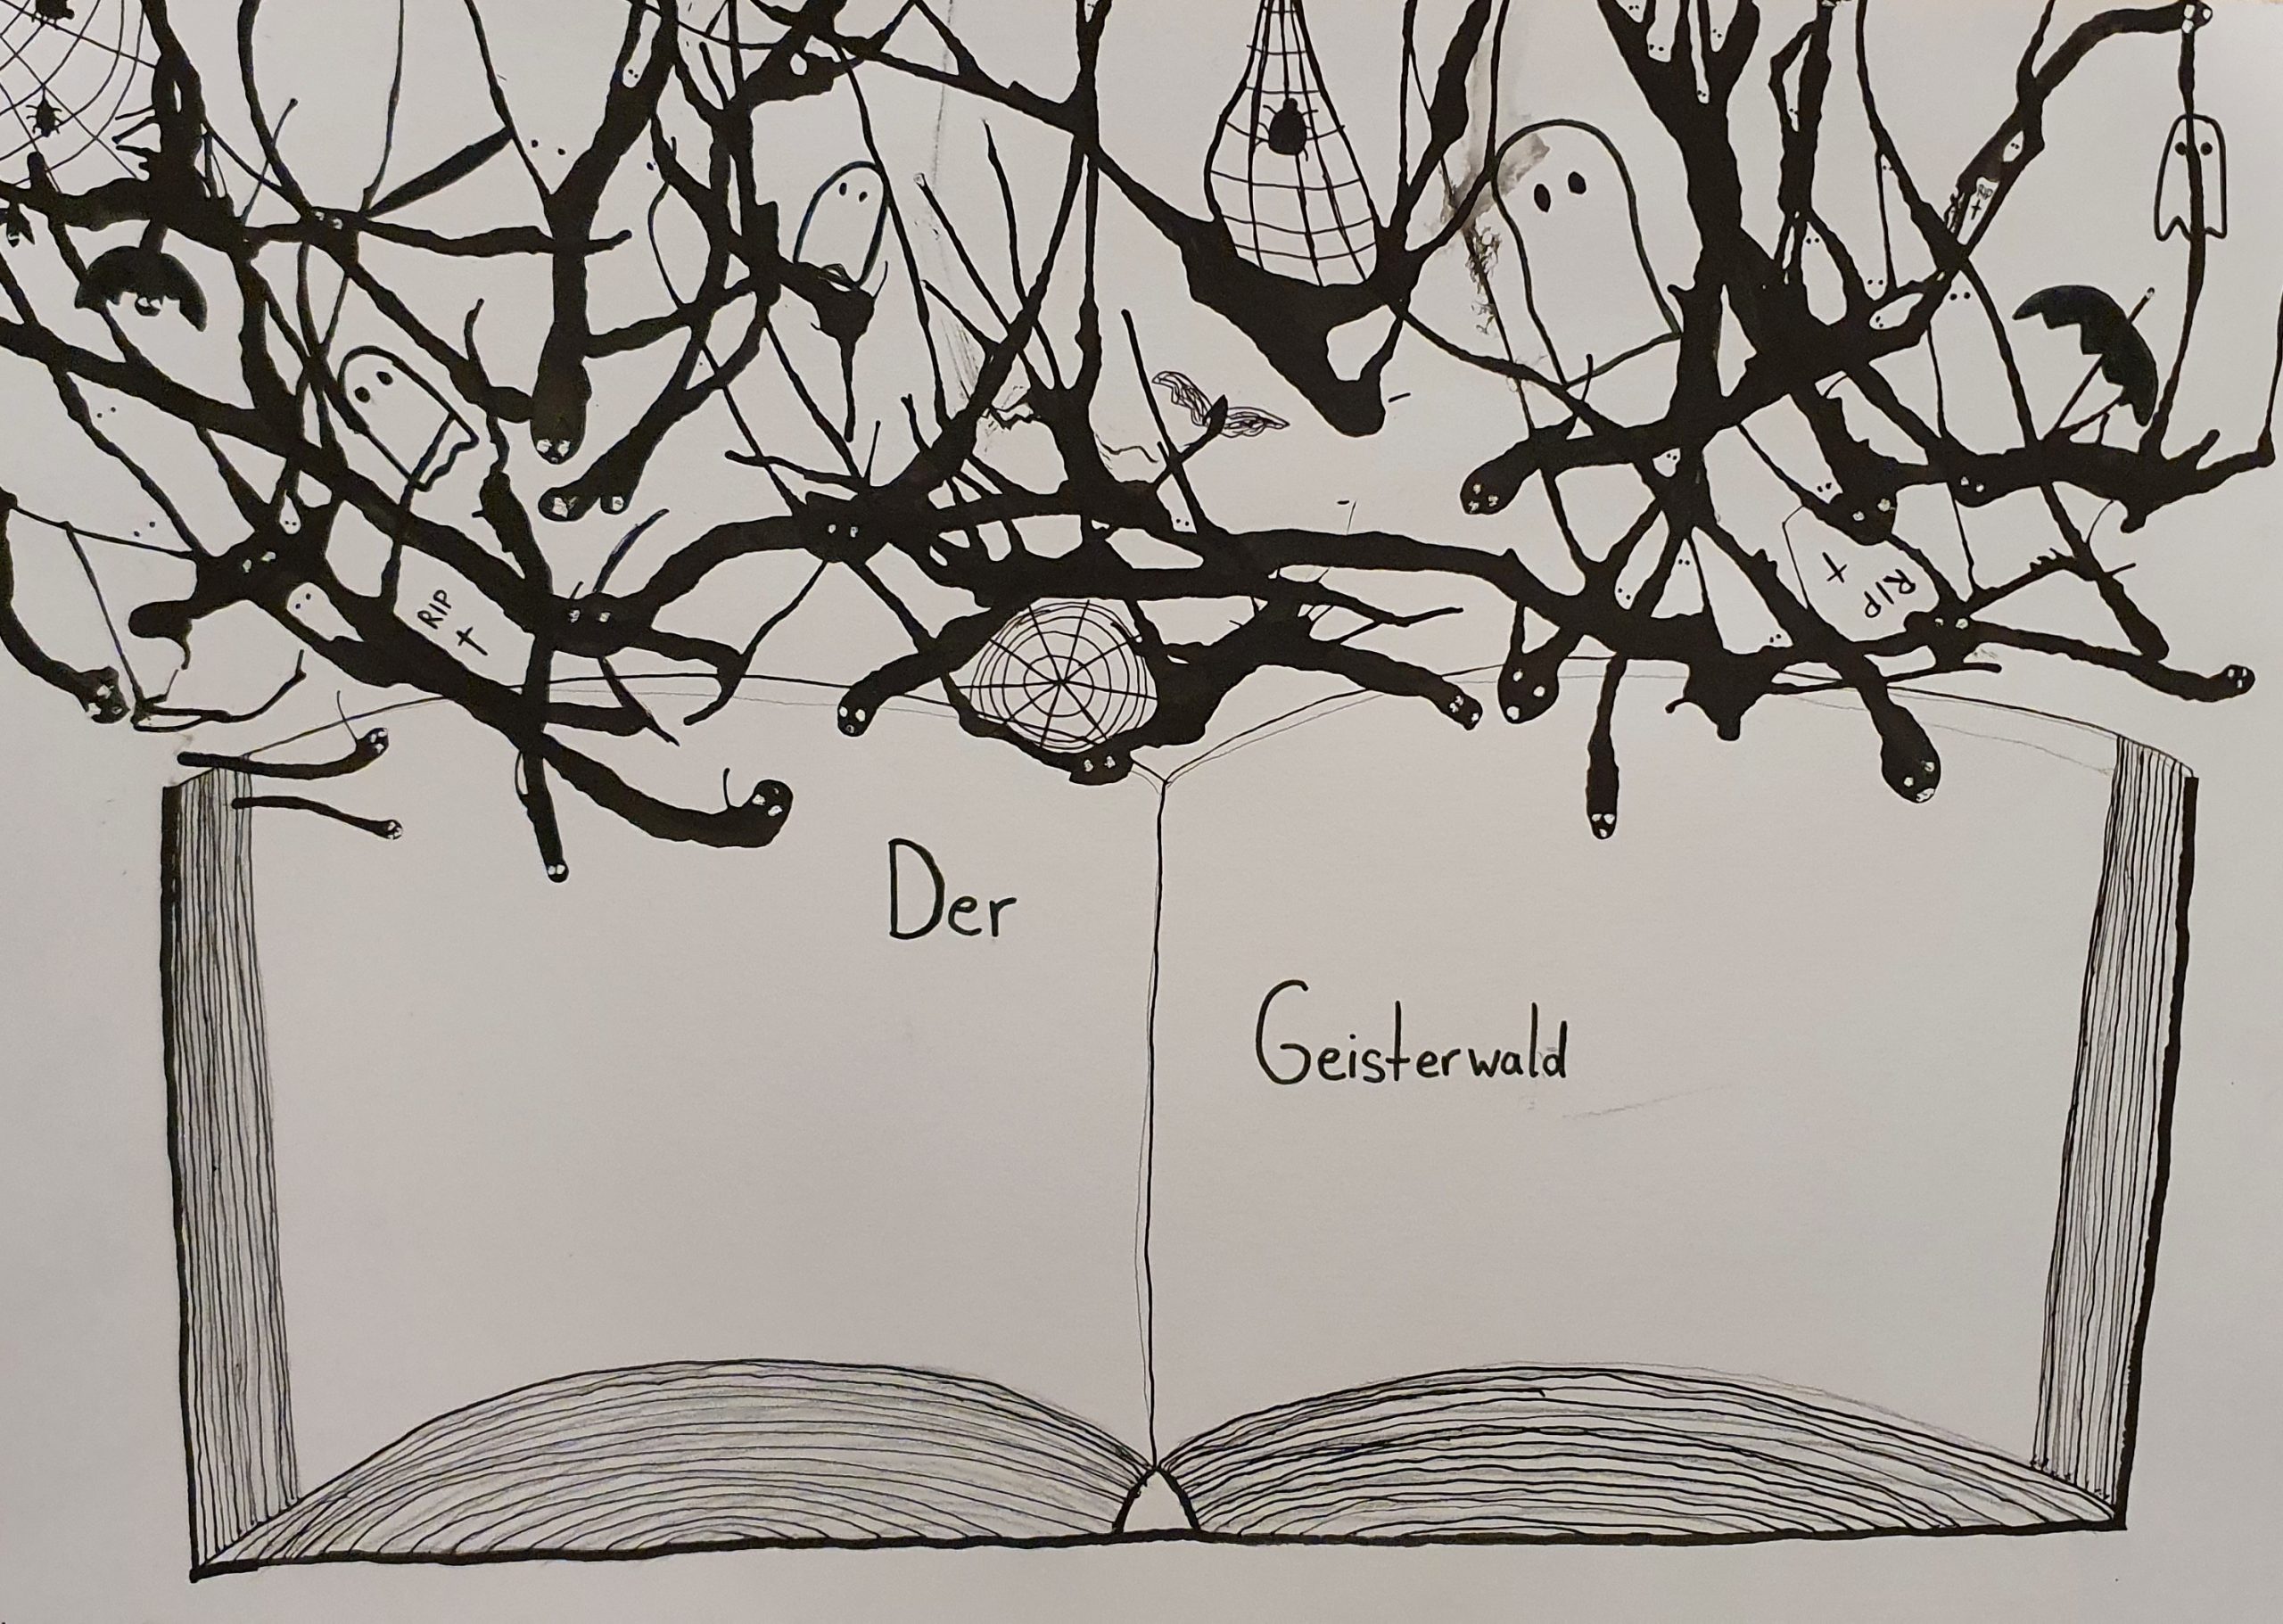 RIP
RIP
RIP
Der
Geisterwald